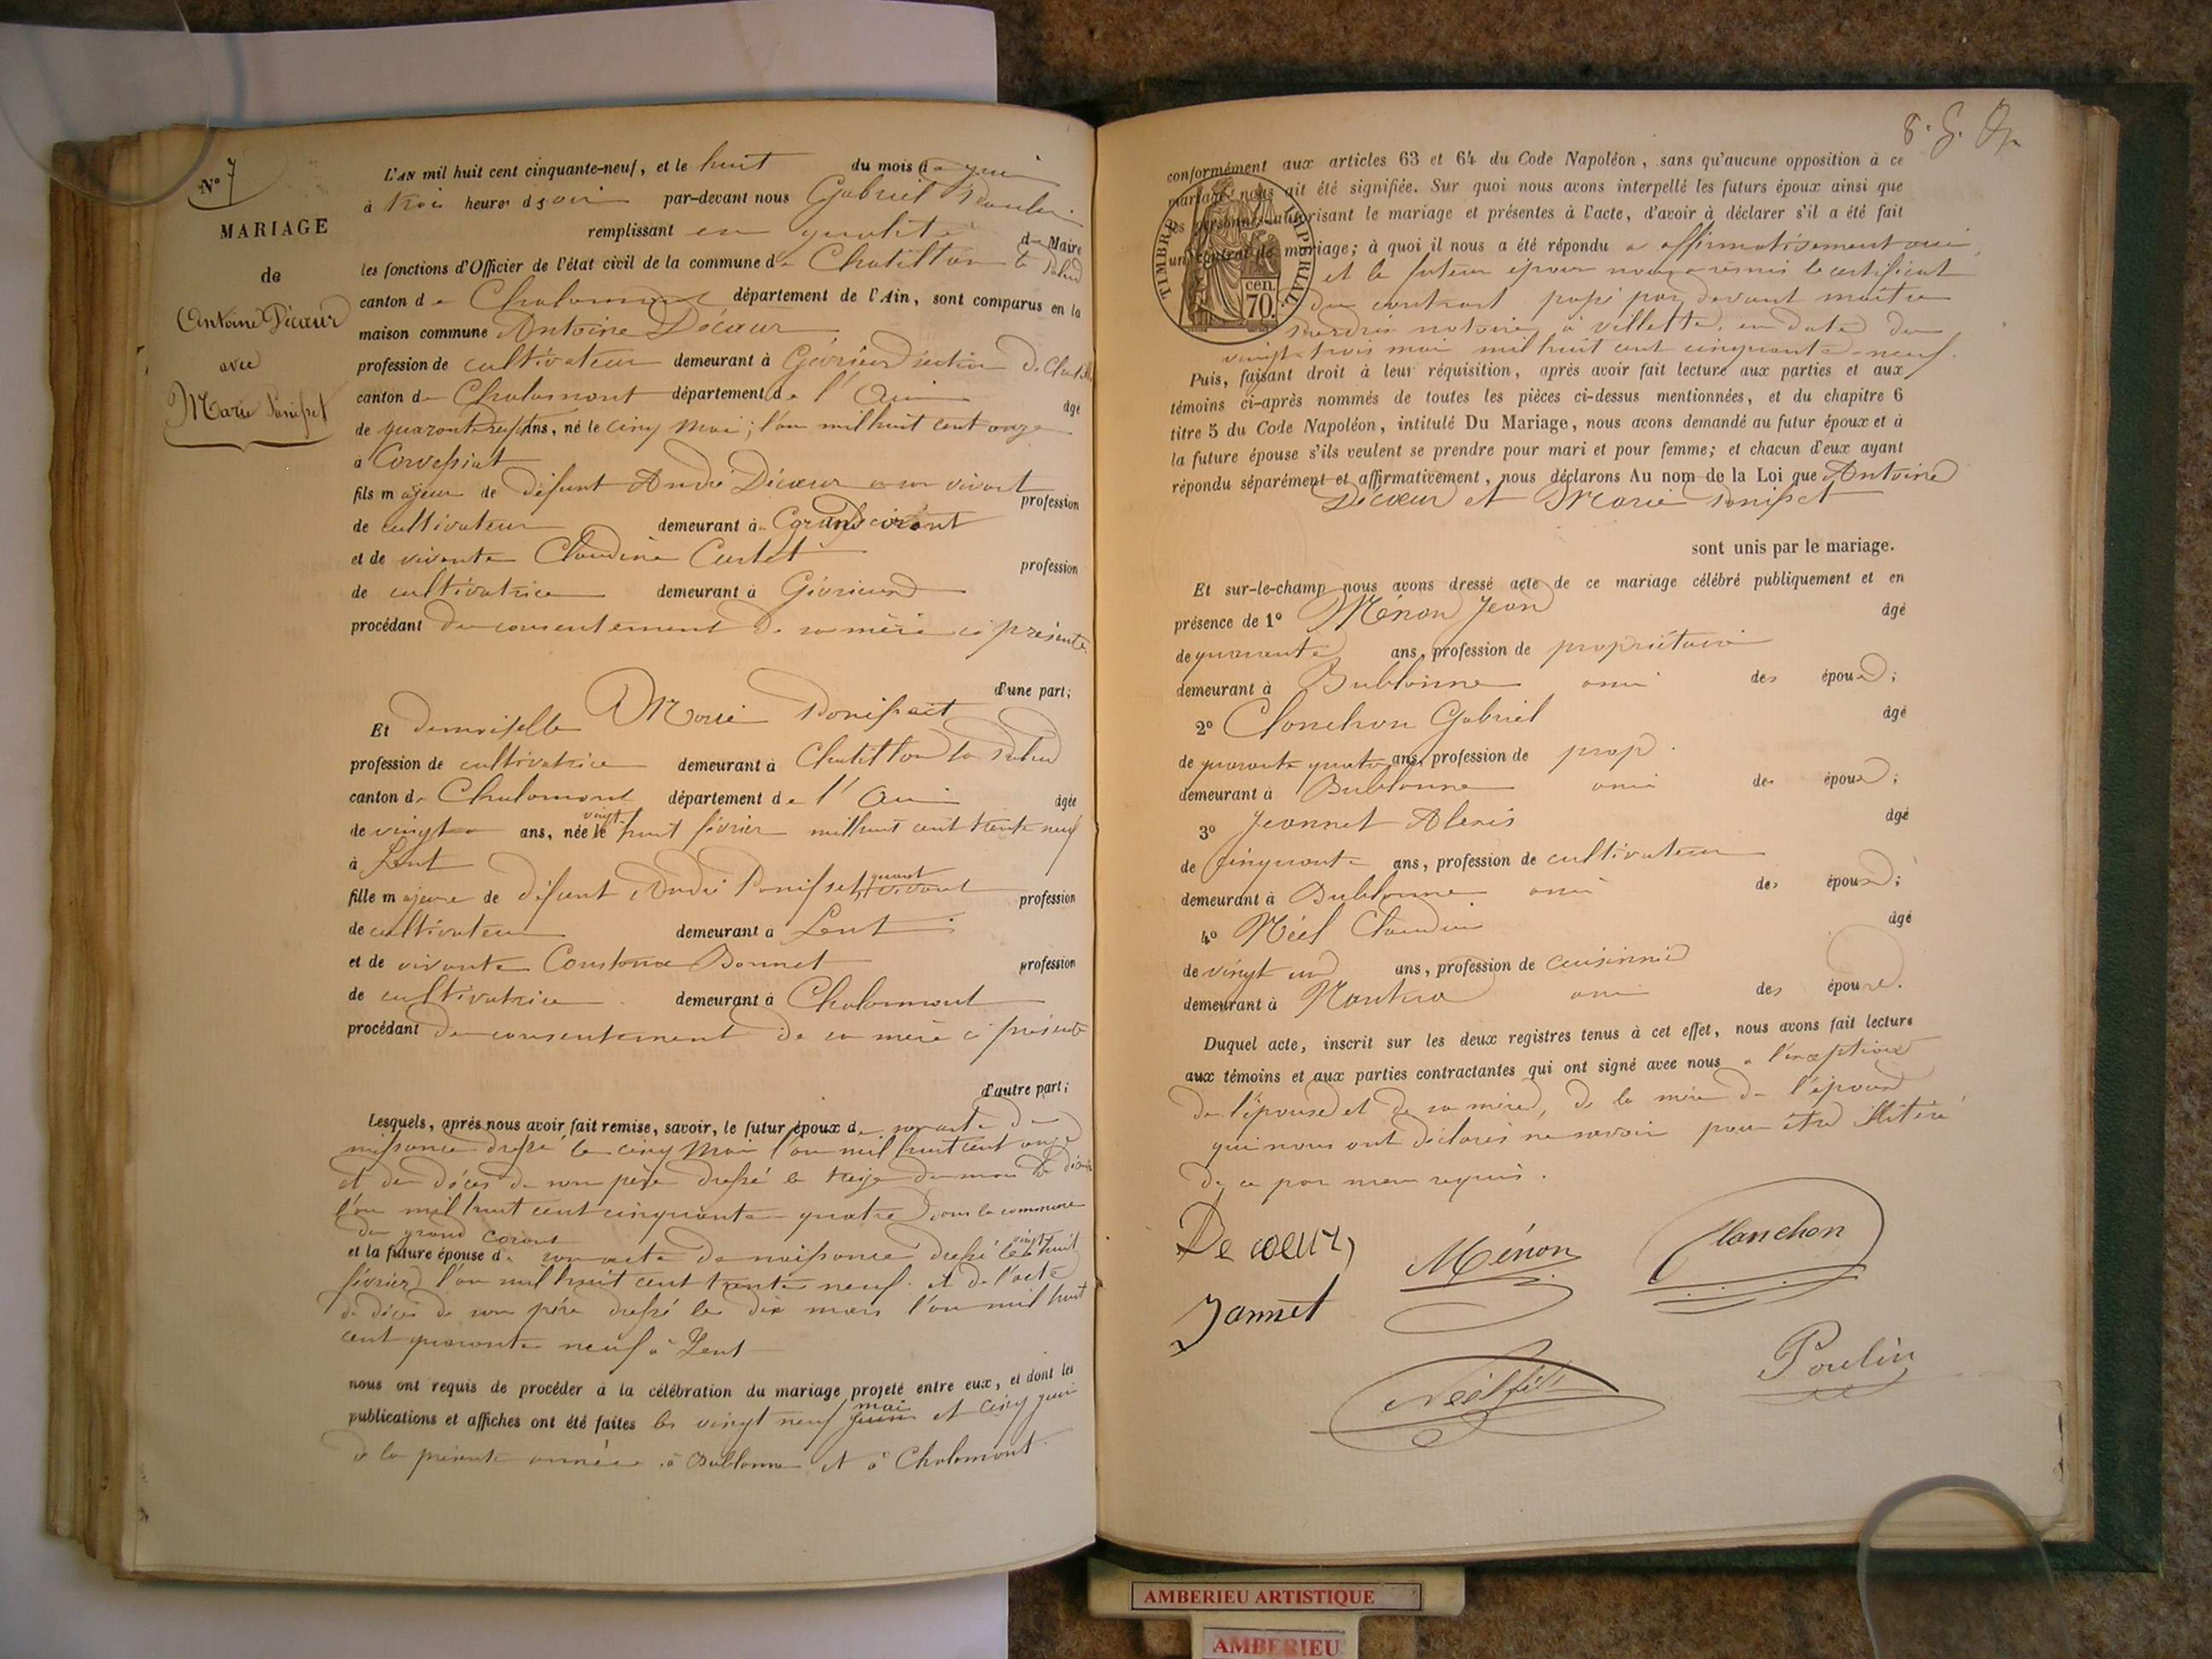 N° 7
MARIAGE
de
Antoine Décœur
avec
Marie Ponisset
L'AN mil huit cent cinquante-neuf, et le huit du mois de juin
à trois heures d soir par-devant nous Gabriel Poulin
remplissant en qualité de Maire
les fonctions d'Officier de l'état civil de la commune de Chatillon la Palud
canton de Chalamont département de l'Ain, sont comparus en la
maison commune Antoine Décœur
profession de cultivateur demeurant à Gévrieux section de
canton de Chalamont département de l'Ain âgé
de quarante ans, né le cinq mai, l'an mil huit cent onze
à Corvessiat
fils majeur de défunt André Décœur vivant profession
de cultivateur demeurant à Grand corent
et de vivante Claudine Curtet profession
de cultivatrice demeurant à Gévrieux
procédant du consentement de sa mère ci présente
d'une part;
Et demoiselle Marie
profession de cultivatrice demeurant à Chatillon la Palud
canton de Chalamont département de l'Ain âgée
de vingt ans, née le vingt huit février mil huit cent trente neuf
à Lent
fille majeure de défunt André Ponisset, quant vivant profession
de cultivateur demeurant à Lent
et de vivante Constance Bonnet profession
de cultivatrice demeurant à Chalamont
procédant du consentement de sa mère ci présente
d'autre part;
Lesquels, après nous avoir fait remise, savoir, le futur époux de son acte de
naissance dressé le cinq Mai l'an mil huit cent onze
et de décès de son père dressé le treize du mois de
l'an mil huit cent cinquante-quatre dans la commune
du grand corent
et la future épouse de son acte de naissance dressé le vingt huit
février l'an mil huit cent trente neuf. et de l'acte
de décès de son père dressé le dix mars l'an mil huit
cent quarante neuf à Lent
nous ont requis de procéder à la célébration du mariage projeté entre eux, et dont les
publications et affiches ont été faites les vingt neuf mai juin et cinq juin
de la présente année à Bublanne et à Chalamont.
conformément aux articles 63 et 64 du Code Napoléon, sans qu'aucune opposition à ce
mariage nous ait été signifiée. Sur quoi nous avons interpellé les futurs époux ainsi que
les personnes autorisant le mariage et présentes à l'acte, d'avoir à déclarer s'il a été fait
un contrat de mariage; à quoi il nous a été répondu affirmativement oui
TIMBRE IMPÉRIAL
cen.
70.
et le futur époux nous a remis le certificat
du contrat passé par devant maître
notaire à villette, en date du
vingt-trois mai mil huit cent cinquante-neuf.
Puis, faisant droit à leur réquisition, après avoir fait lecture aux parties et aux
témoins ci-après nommés de toutes les pièces ci-dessus mentionnées, et du chapitre 6
titre 5 du Code Napoléon, intitulé Du Mariage, nous avons demandé au futur époux et à
la future épouse s'ils veulent se prendre pour mari et pour femme; et chacun d'eux ayant
répondu séparément et affirmativement, nous déclarons Au nom de la Loi que Antoine
Décœur et Marie Ponisset
sont unis par le mariage.
Et sur-le-champ nous avons dressé acte de ce mariage célébré publiquement et en
présence de 1° Ménon Jean âgé
de quarante ans, profession de propriétaire
demeurant à Bublanne ami des époux;
2° Clanchon Gabriel âgé
de quarante quatre ans, profession de prop.
demeurant à Bublanne ami des époux;
3° Jeannet Alexis âgé
de cinquante ans, profession de cultivateur
demeurant à Bublanne ami des époux;
4° Néel Claudin âgé
de vingt un ans, profession de cuisinier
demeurant à Nantua ami des époux.
Duquel acte, inscrit sur les deux registres tenus à cet effet, nous avons fait lecture
aux témoins et aux parties contractantes qui ont signé avec nous à l'exception
de l'épouse et de sa mère, de la mère de l'époux
qui nous ont déclarés ne savoir pour être illitéré
de ce par nous requis.
Decœur
Ménon
Clanchon
Jannet
Néel fils
Poulin
AMBERIEU ARTISTIQUE
AMBERIEU